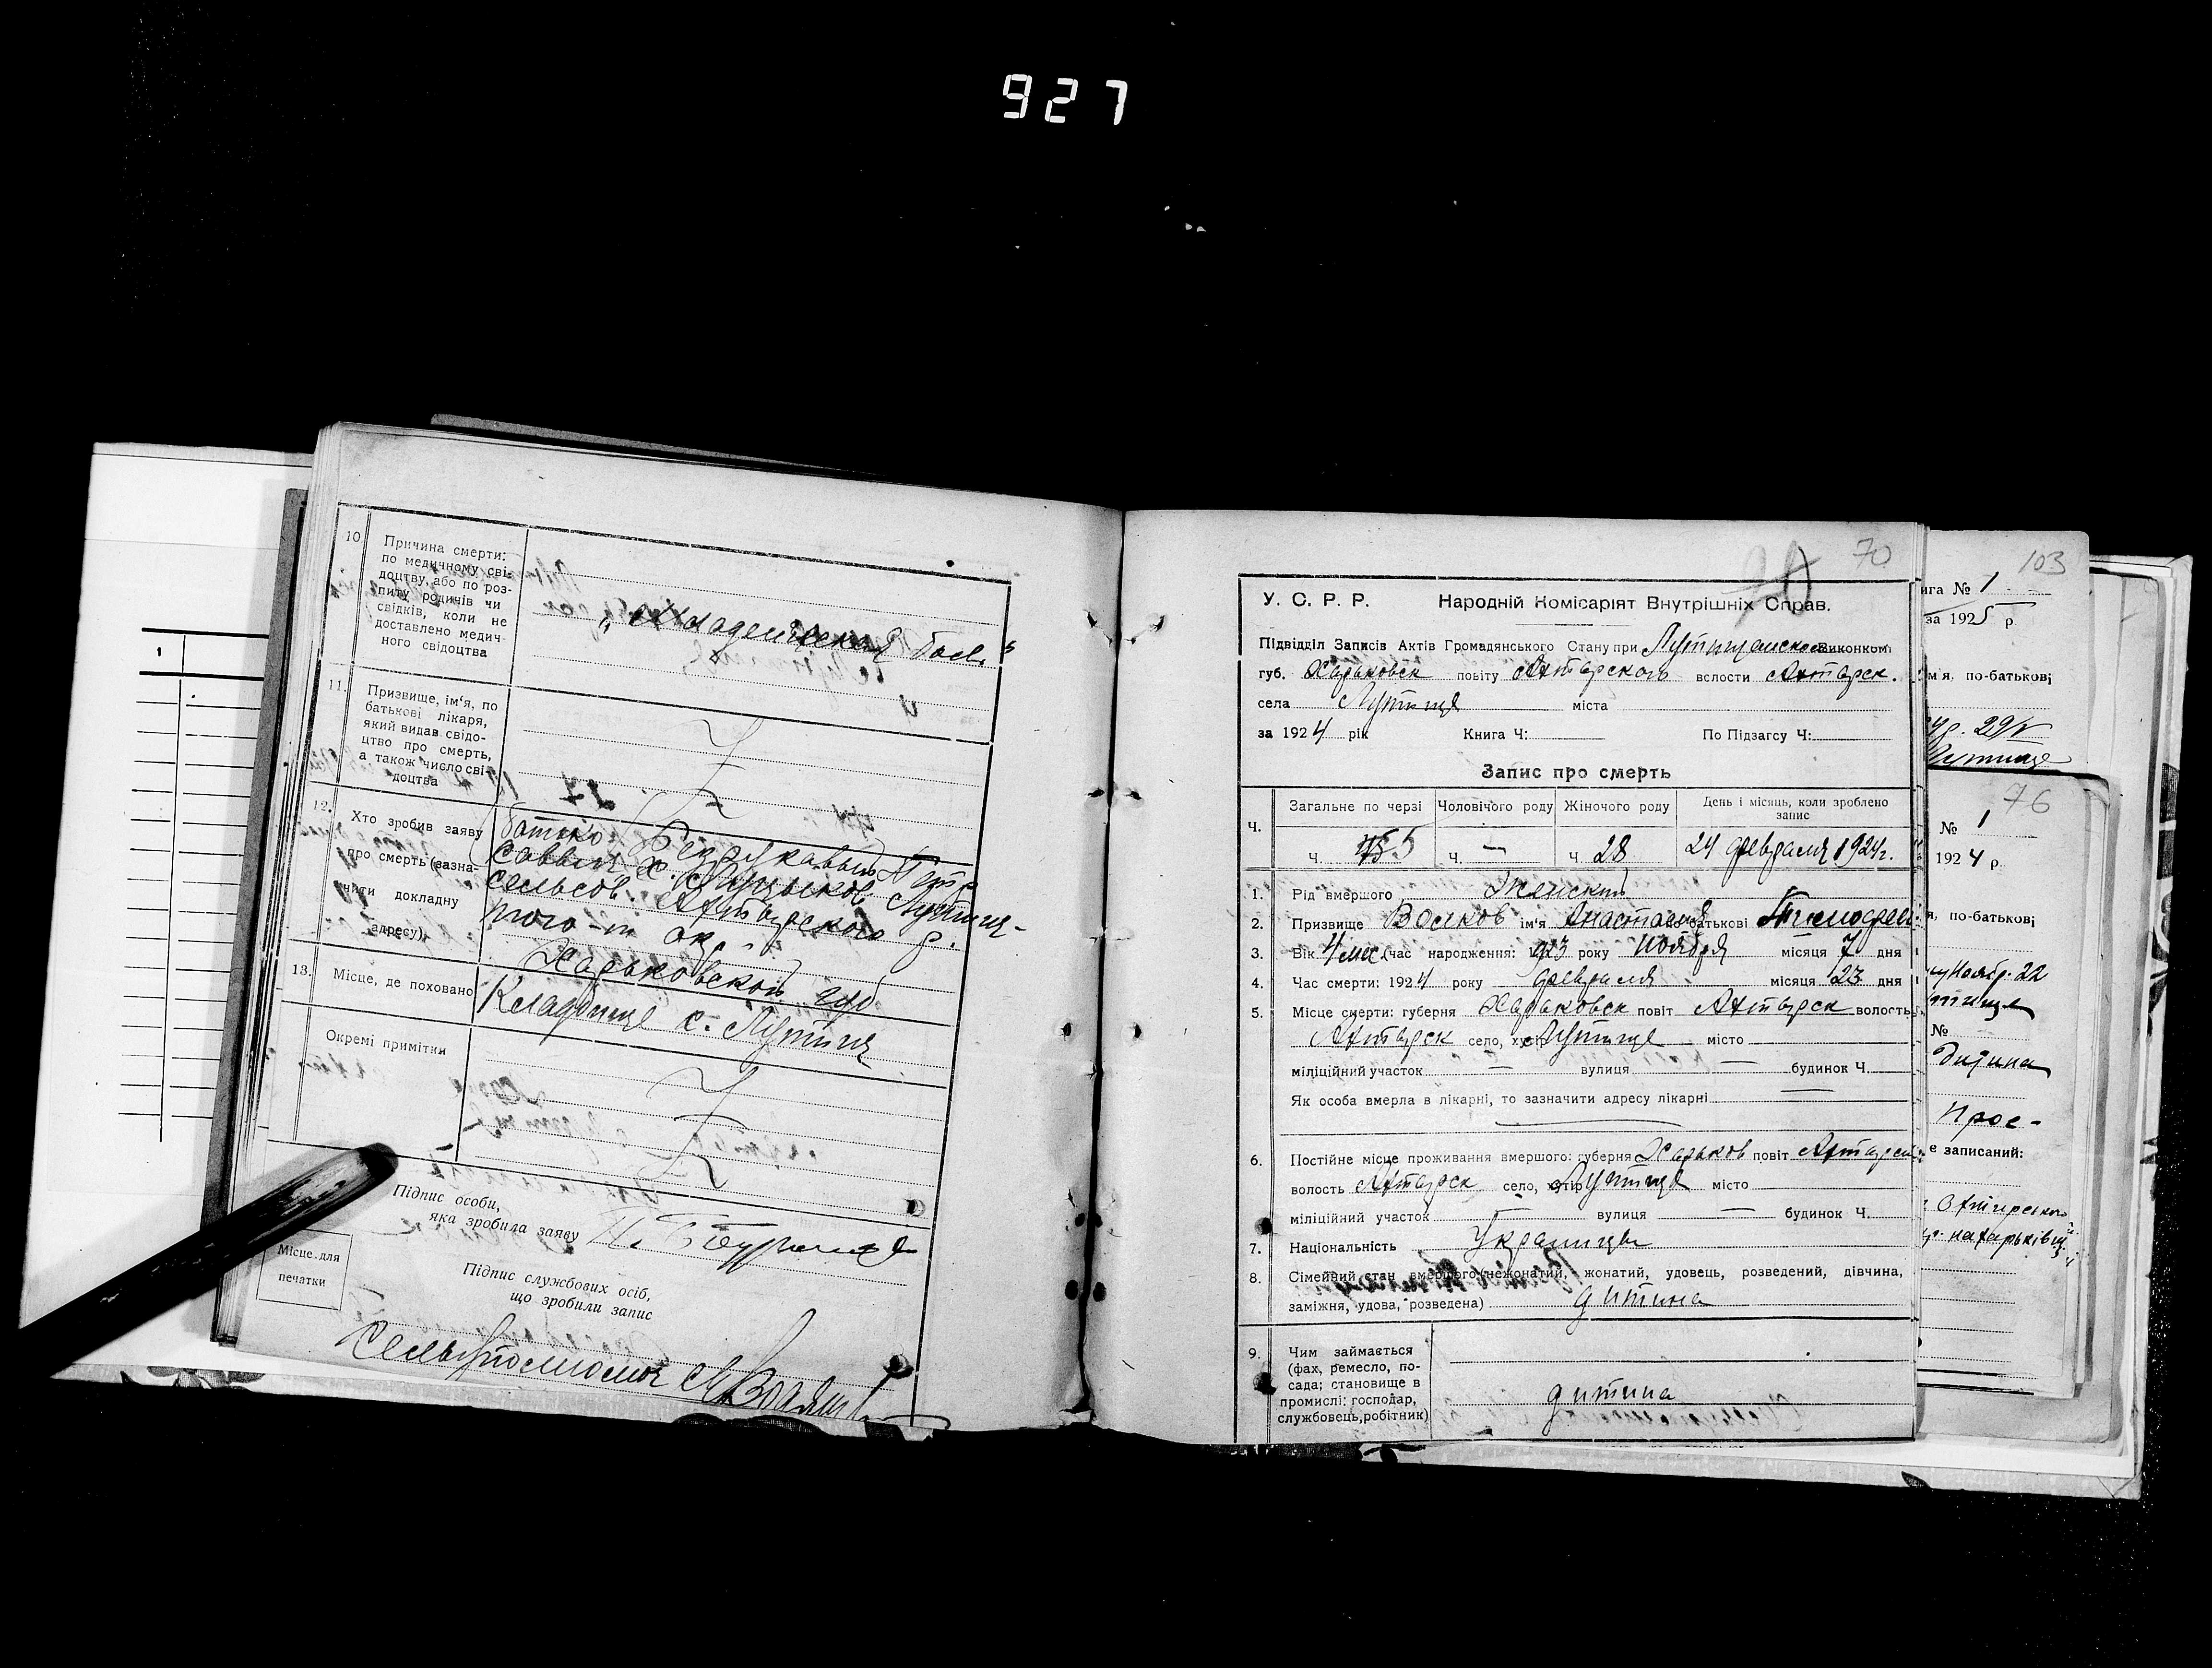 927
10. Причина смерти:
по медичному сві-
доцтву, або по роз-
питу родичів чи
свідків, коли не
доставлено медич-
ного свідоцтва
"Младенческая бол.
11. Призвище, ім'я, по
батькові лікаря,
який видав свідо-
цтво про смерть,
а також число сві-
доцтва
12. Хто зробив заяву
про смерть (вазна-
чити докладну
адресу)
батько Безрукавый
Саввич х.
сельсов. Ахтырского р.
того-ж ок.
Харьковской губ.
13. Місце, де поховано
Кладбище с. Лутище
Окремі примітки
Підпис особи,
яка зробила заяву
Місце для
печатки
Підпис службових осіб,
що зробили запис
70
У. С. Р. Р. Народній Комісаріят Внутрішніх Справ.
Підвідділ Записів Актів Громадянського Стану при Лутищанском виконкомі
губ. Харьковск повіту Ахтырского вслости Ахтырск.
села Лутище міста
за 1924 рік Книга Ч: По Підзагсу Ч:
Запис про смерть
Ч. Загальне по черзі Чоловічого роду Жіночого роду День і місяць, коли зроблено
запис
Ч. 55 Ч. — Ч. 28 24 февраля 1924 г.
1. Рід вмершого Женский
2. Призвище Волков ім'я Анастасия по батькові Тимофеев
3. Вік 4 мес. (час народження: 923 року ноября місяця 7 дня
4. Час смерти: 1924 року февраля місяця 23 дня
5. Місце смерти: губерня Харьковск повіт Ахтырск волость
Ахтырск село, хутір Лутище місто —
міліційний участок — вулиця — будинок Ч.
Як особа вмерла в лікарні, то зазначити адресу лікарні —
6. Постійне місце проживання вмершого: губерня Харьков повіт Ахтырск
волость Ахтырск село, хутір Лутище місто
міліційний участок — вулиця — будинок Ч.
7. Національність Украинцы
8. Сімейний стан вмершого: (нежонатий, жонатий, удовець, розведений, дівчина,
заміжня, удова, розведена) дитина
9. Чим займається
(фах, ремесло, по-
сада; становище в
промислі: господар,
службовець, робітник)
дитина
103
ига № 1
за 1925 р.
м'я, по-батькові
29/V
Лутище
76
№ 1
1924 р.
я, по-батькові
Ноябр. 22
№
дитина
Прос-
е записаний:
Охтирського
1